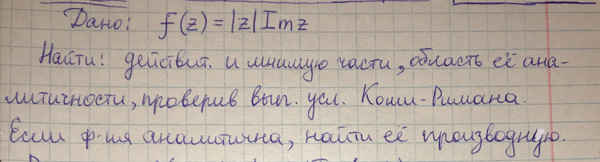 Дано: f(z) = |z| Im z
Найти: действит. и мнимую части, область её ана-
литичности, проверив вып. усл. Коши-Римана.
Если ф-ия аналитична, найти её производную.